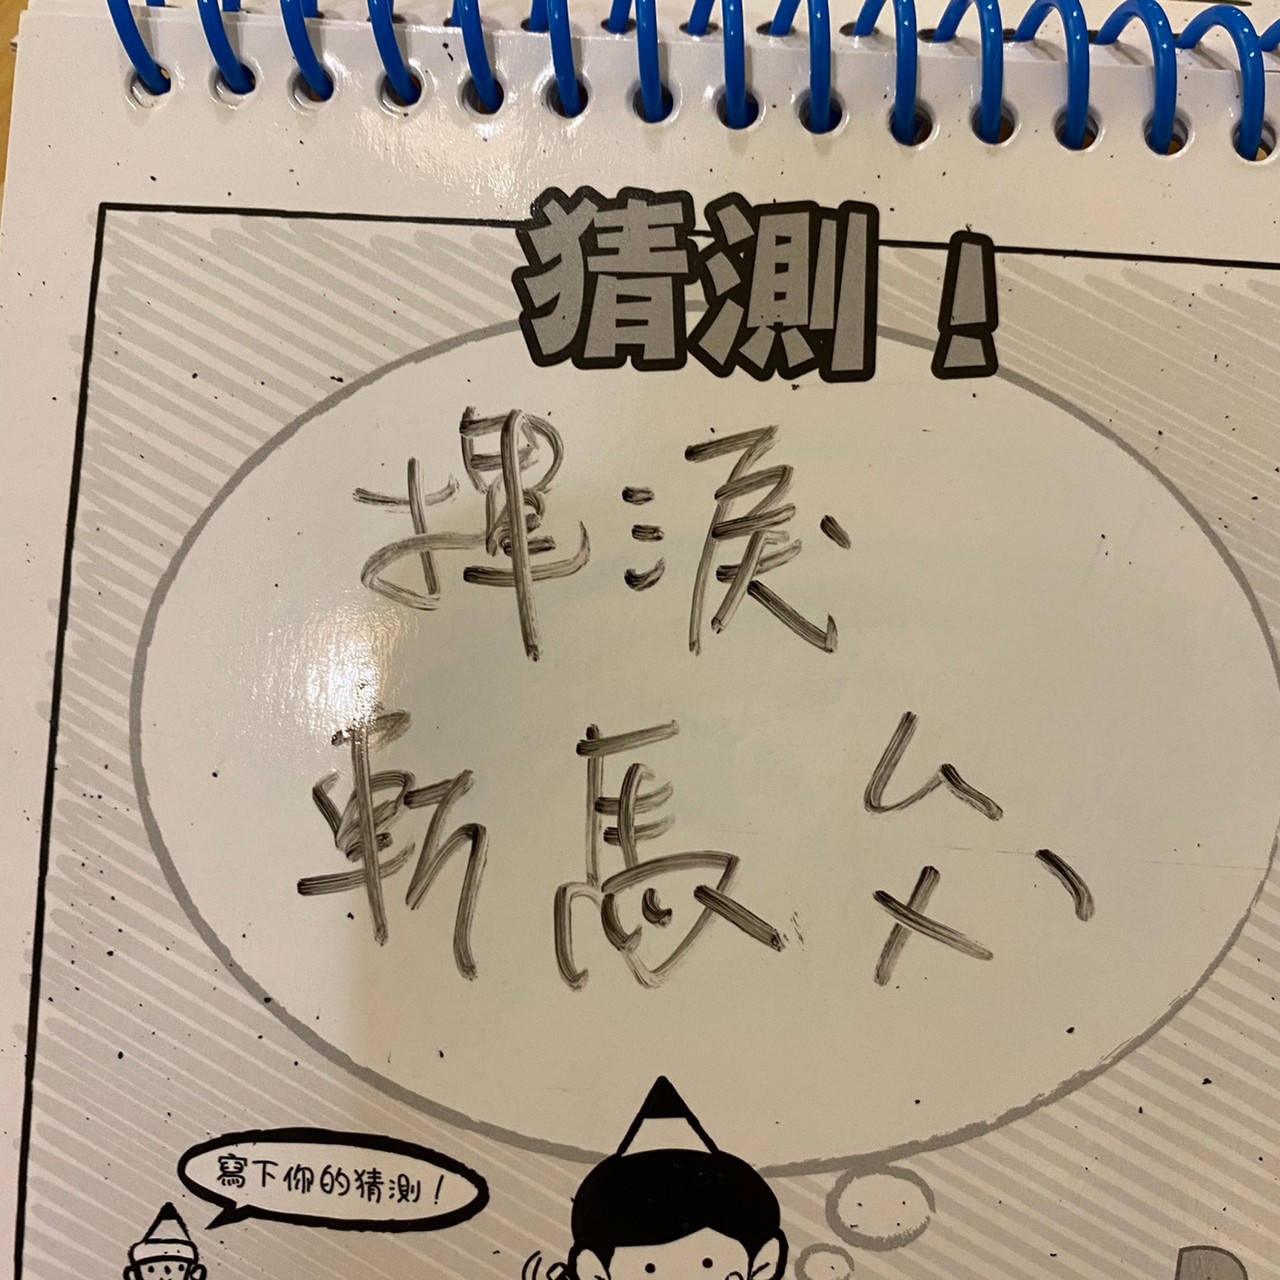 猜測！
揮淚
斬馬ㄙㄨˋ
寫下你的猜測！